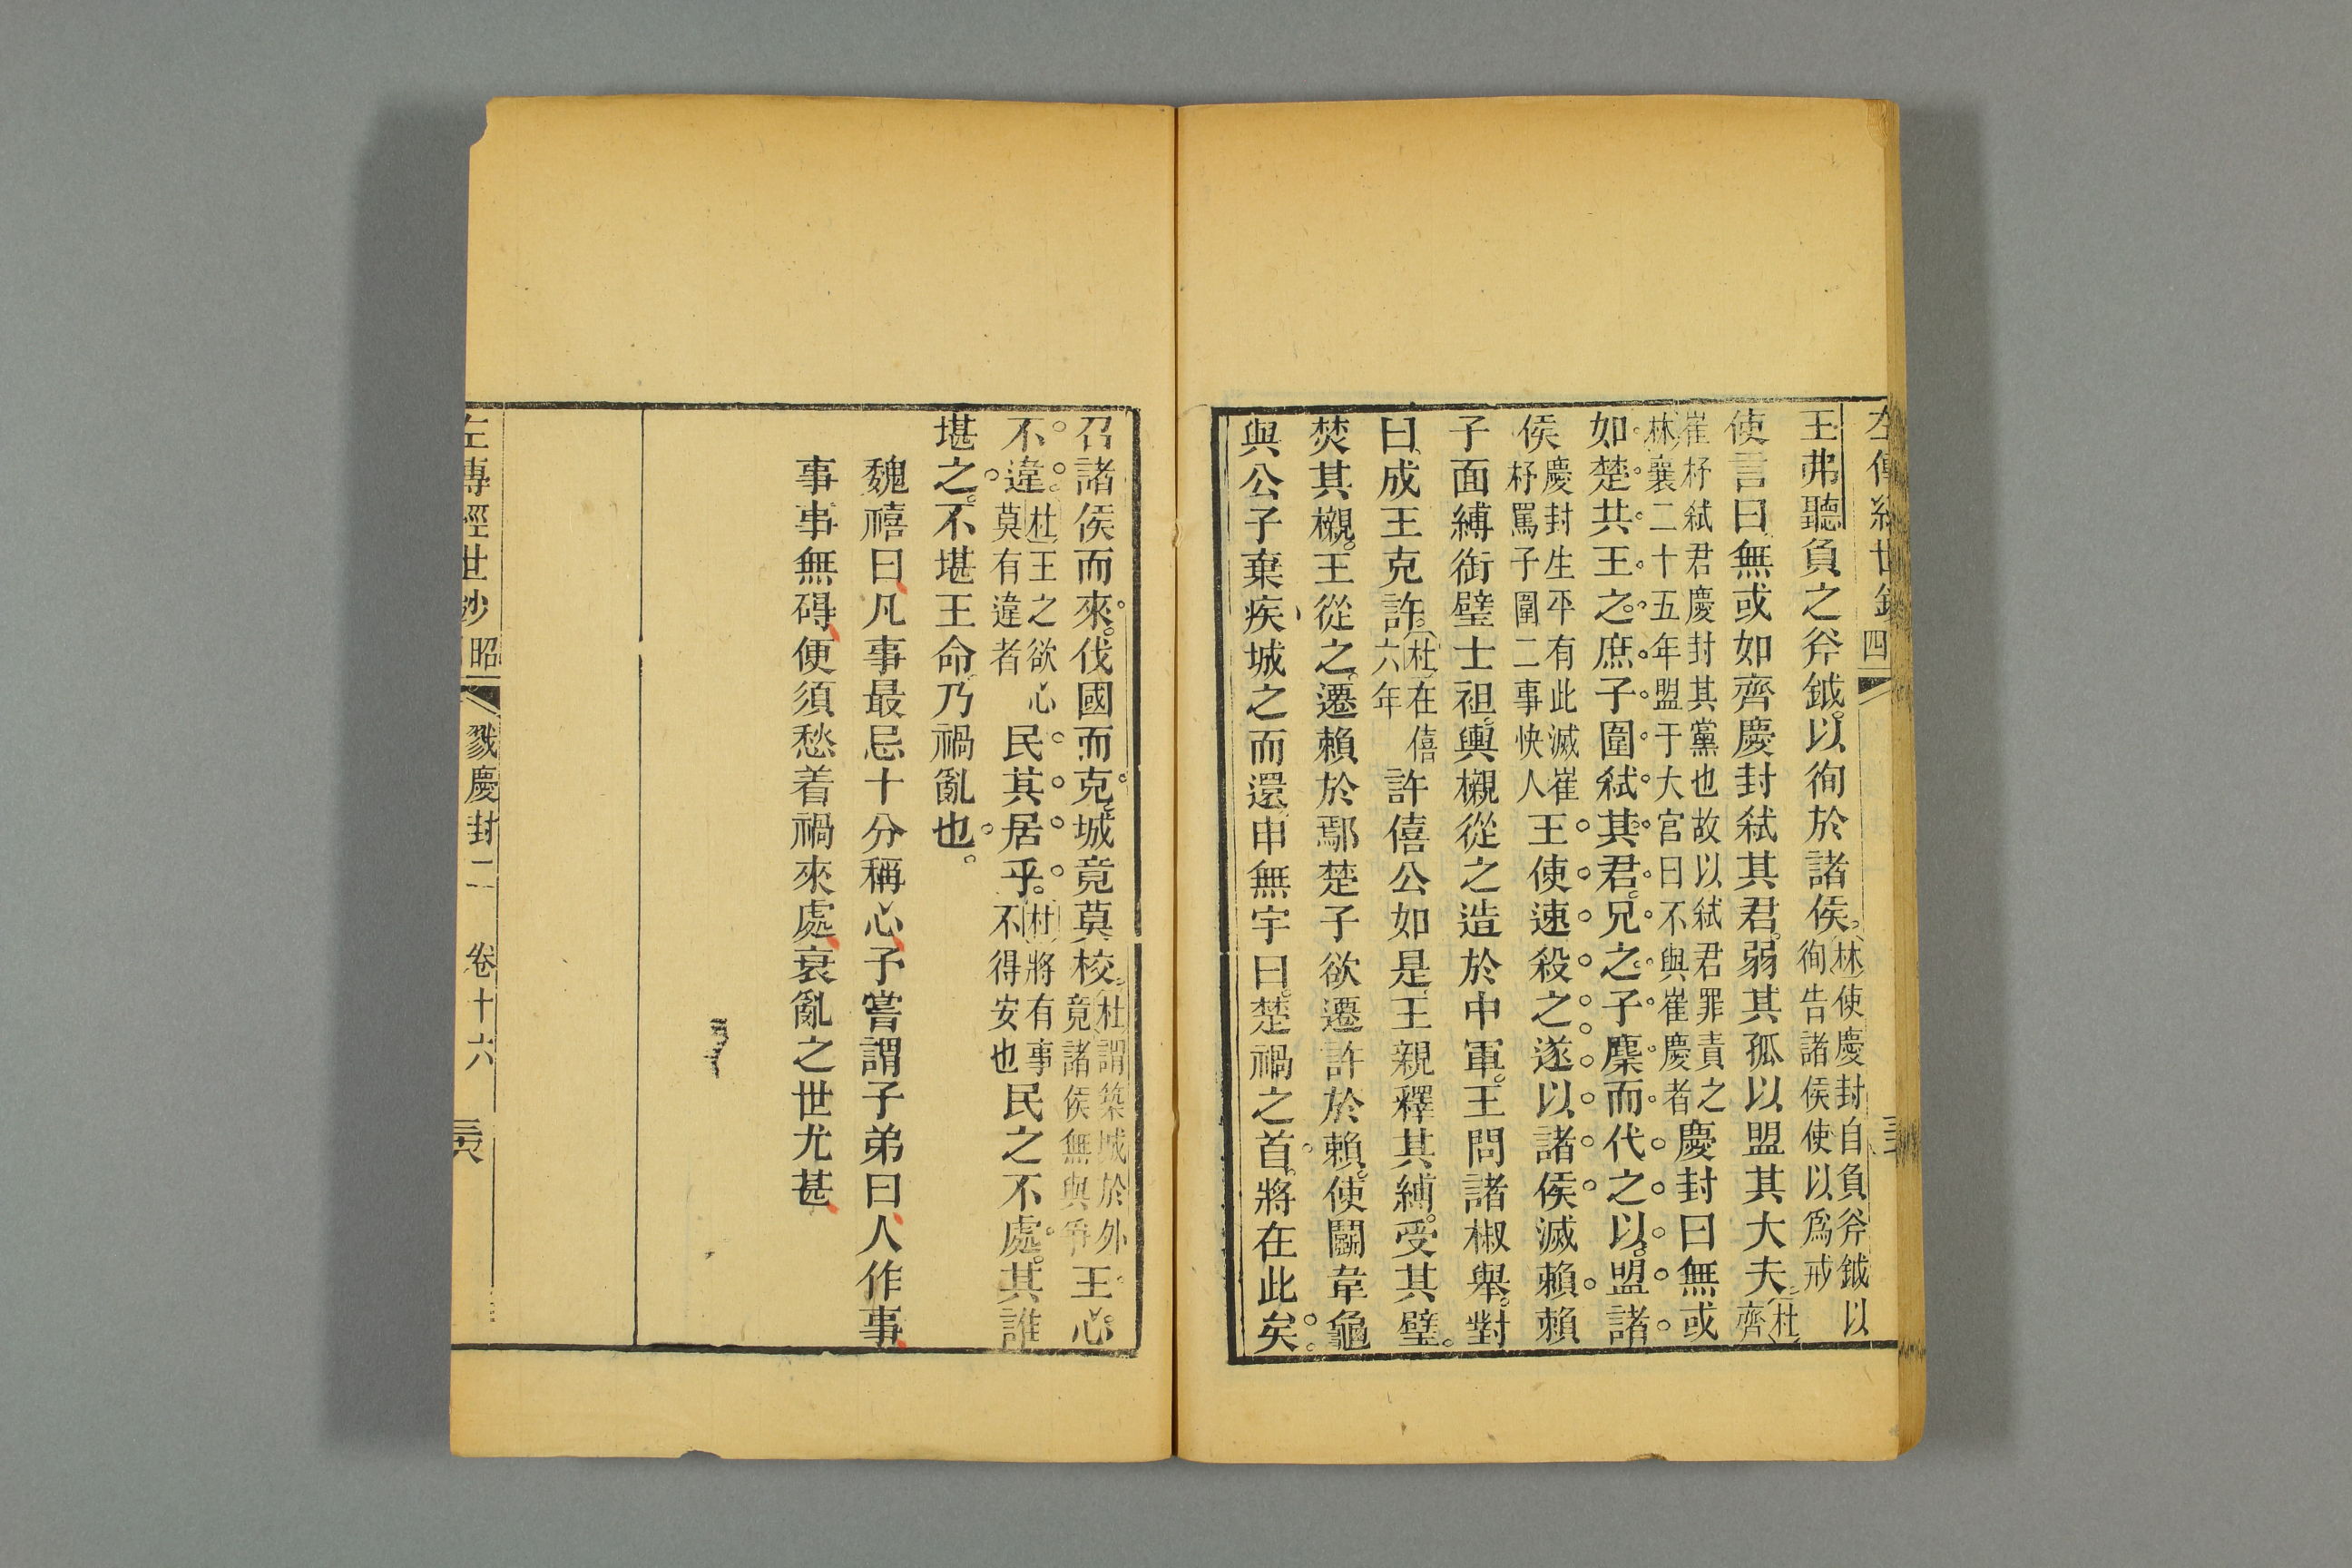 王弗聽負之斧鉞以徇於諸侯林使慶封自負斧鉞以徇告諸侯使以爲戒
使言曰無或如齊慶封弒其君弱其孤以盟其大夫杜齊
崔杼弒君慶封其黨也故以弒君罪責之林襄二十五年盟于大宮曰不與崔慶者慶封曰無或
如楚共王之庶子圍弒其君兄之子麇而代之以盟諸
侯慶封生平有此滅崔杼罵子圍二事快人王使速殺之遂以諸侯滅賴賴
子面縛銜璧士袒輿櫬從之造於中軍王問諸椒舉對
曰成王克許杜在僖六年許僖公如是王親釋其縛受其璧
焚其櫬王從之遷賴於鄢楚子欲遷許於賴使鬬韋龜
與公子棄疾城之而還申無宇曰楚禍之首將在此矣
召諸侯而來伐國而克城竟莫校杜謂築城於外竟諸侯無與爭王心
不違杜王之欲心莫有違者民其居乎杜將有事不得安也民之不處其誰
堪之不堪王命乃禍亂也
魏禧曰凡事最忌十分稱心予嘗謂子弟曰人作事
事事無碍便須愁着禍來處衰亂之世尤甚
左傳經世鈔 昭 戮慶封二 卷十六